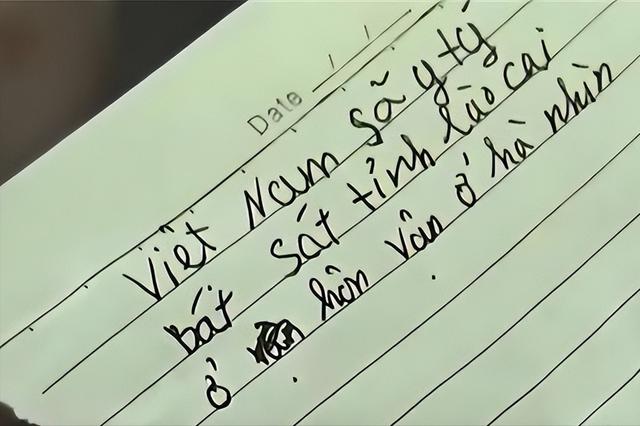 Date / /
Viêt Nam Sã y ty
bát Sát tỉnh lào cai
ở hôn Vân ở hà nhìn